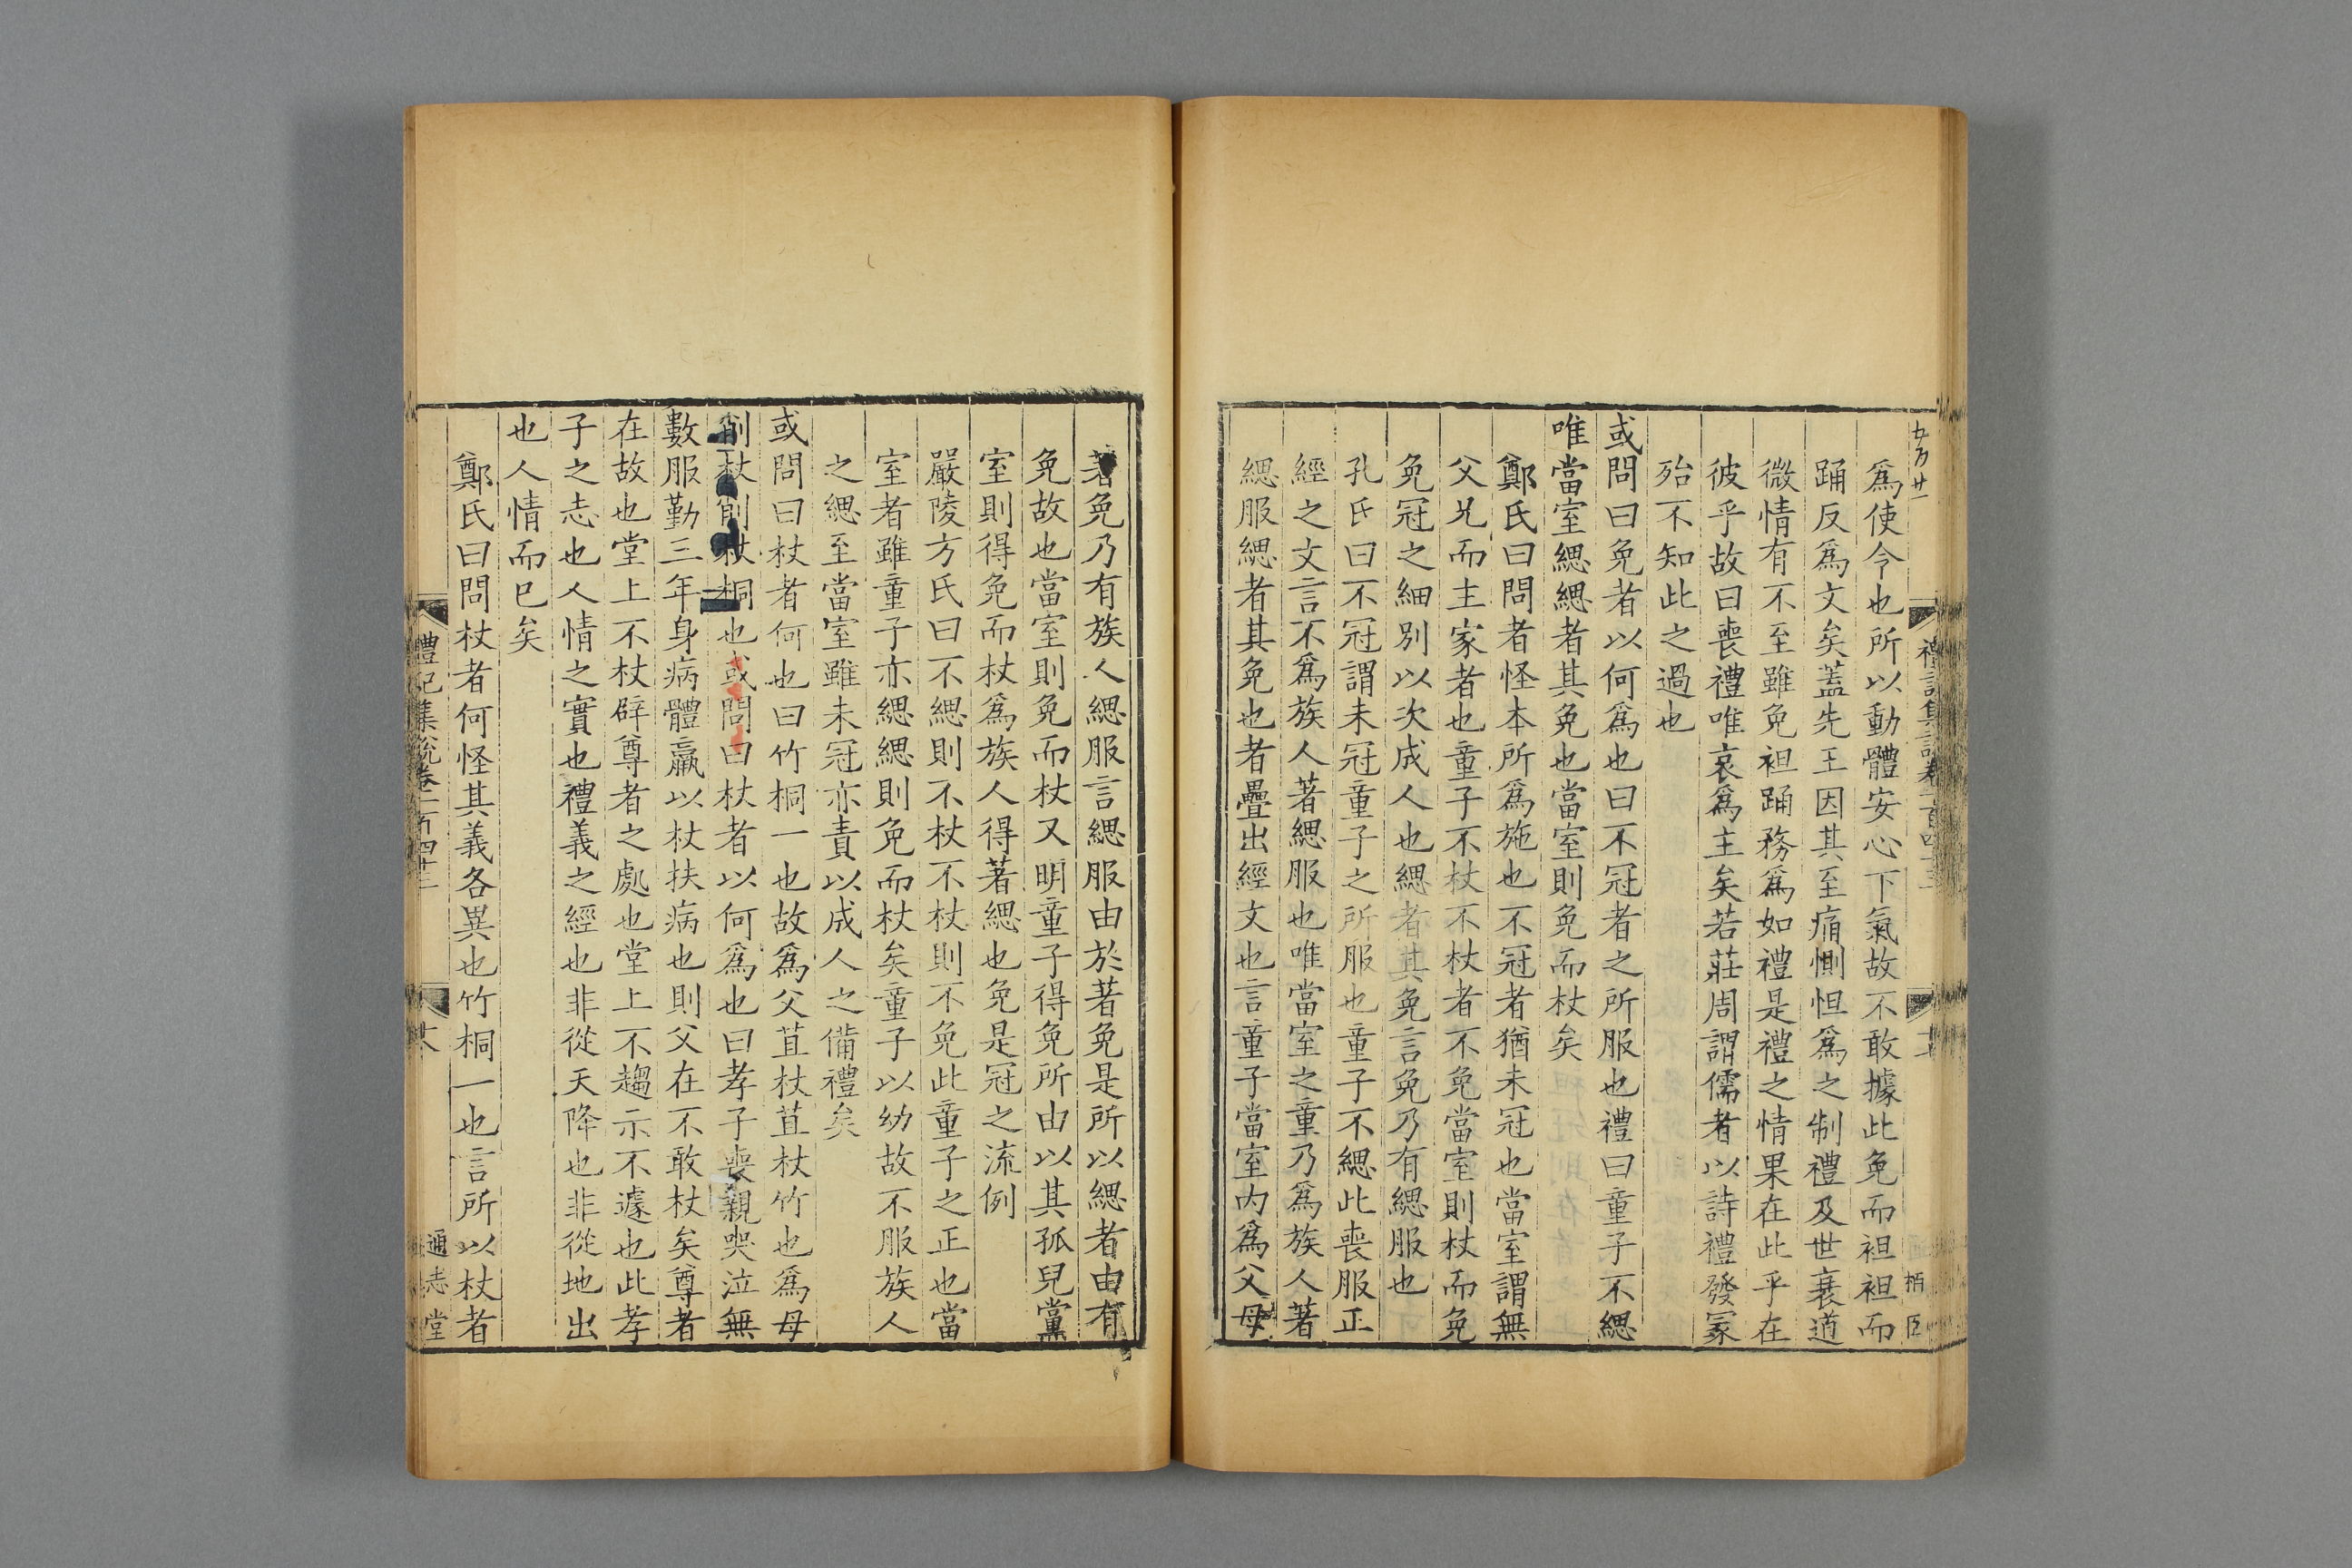 爲使令也所以動體安心下氣故不敢據此免而袒袒而
踊反爲文矣蓋先王因其至痛惻怛爲之制禮及世衰道
微情有不至雖免袒踊務爲如禮是禮之情果在此乎在
彼乎故曰喪禮唯哀爲主矣若莊周謂儒者以詩禮發冢
殆不知此之過也
或問曰免者以何爲也曰不冠者之所服也禮曰童子不緦
唯當室緦緦者其免也當室則免而杖矣
鄭氏曰問者怪本所爲施也不冠者猶未冠也當室謂無
父兄而主家者也童子不杖不杖者不免當室則杖而免
免冠之細別以次成人也緦者其免言免乃有緦服也
孔氏曰不冠謂未冠童子之所服也童子不緦此喪服正
經之文言不爲族人著緦服也唯當室之童乃爲族人著
緦服緦者其免也者疊出經文也言童子當室內爲父母
著免乃有族人緦服言緦服由於著免是所以緦者由有
免故也當室則免而杖又明童子得免所由以其孤兒黨
室則得免而杖爲族人得著緦也免是冠之流例
嚴陵方氏曰不緦則不杖不杖則不免此童子之正也當
室者雖童子亦緦緦則免而杖矣童子以幼故不服族人
之緦至當室雖未冠亦責以成人之備禮矣
或問曰杖者何也曰竹桐一也故爲父苴杖苴杖竹也爲母
削杖削杖桐也或問曰杖者以何爲也曰孝子喪親哭泣無
數服勤三年身病體羸以杖扶病也則父在不敢杖矣尊者
在故也堂上不杖辟尊者之處也堂上不趨示不遽也此孝
子之志也人情之實也禮義之經也非從天降也非從地出
也人情而已矣
鄭氏曰問杖者何怪其義各異也竹桐一也言所以杖者
禮記集說卷一百四十三
通志堂